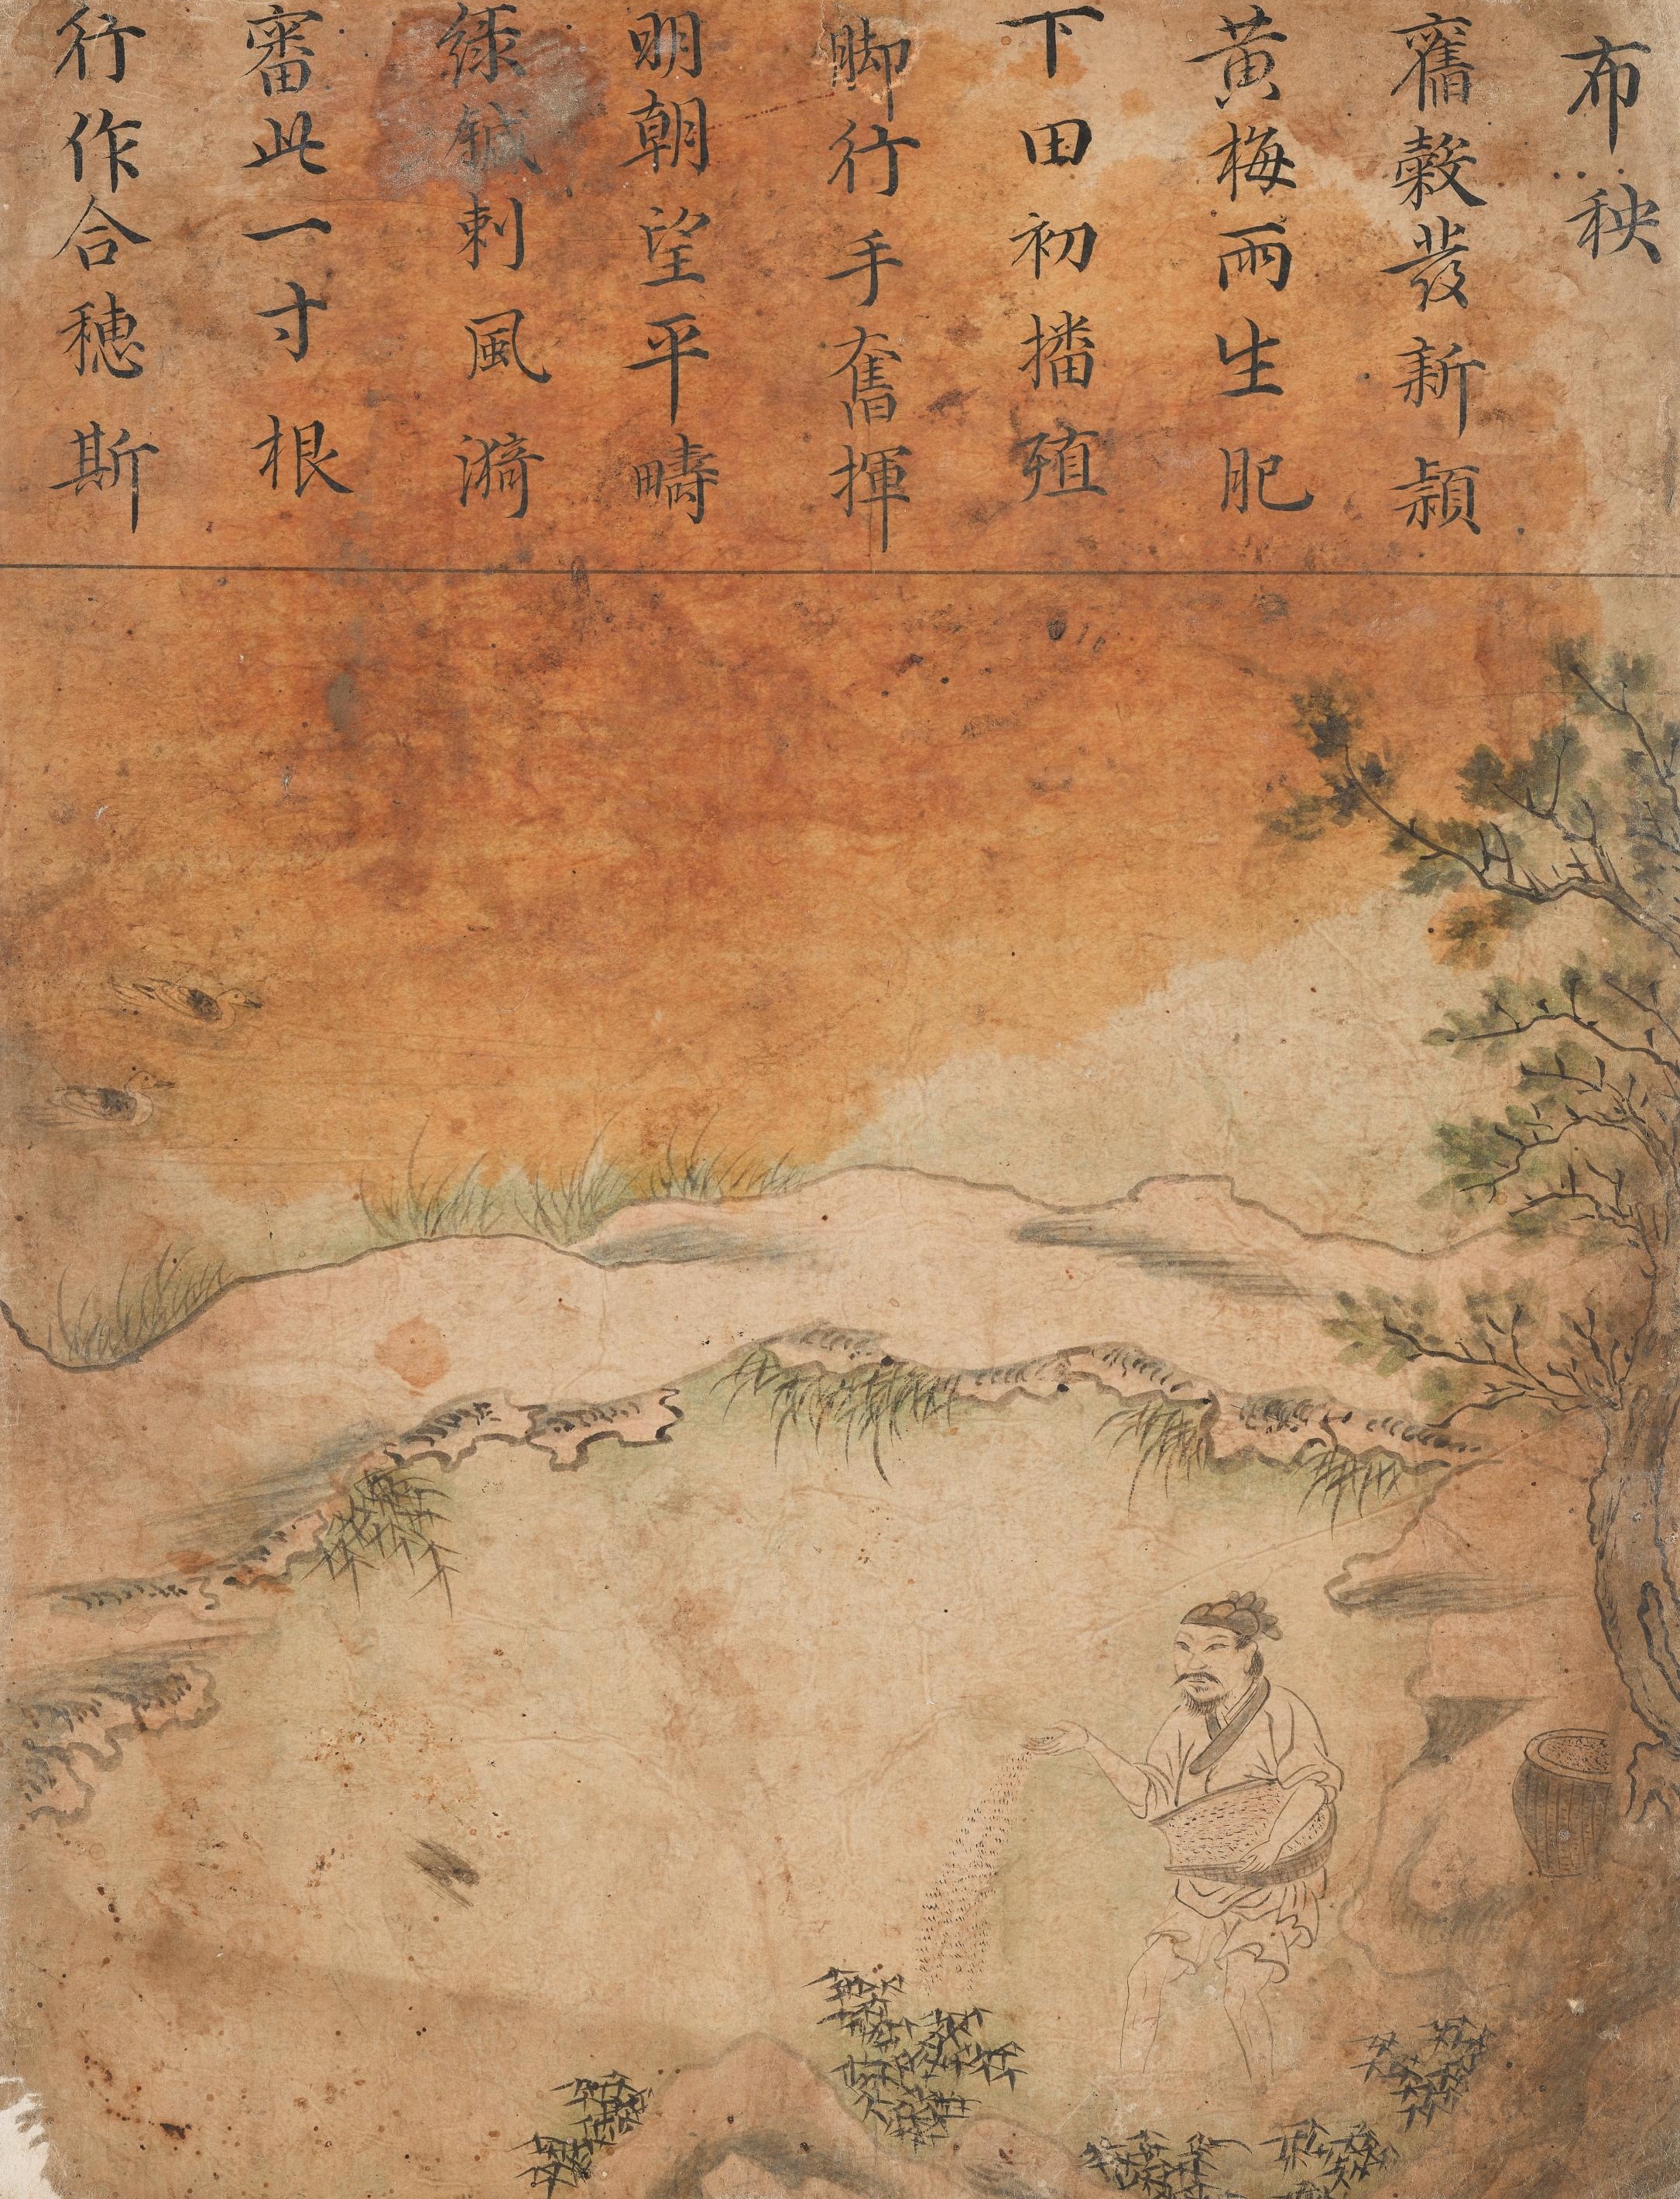 布秧
舊穀發新頴
黃梅雨生肥
下田初播殖
脚行手奮揮
明朝望平疇
綠鍼刺風漪
審此一寸根
行作合穗斯